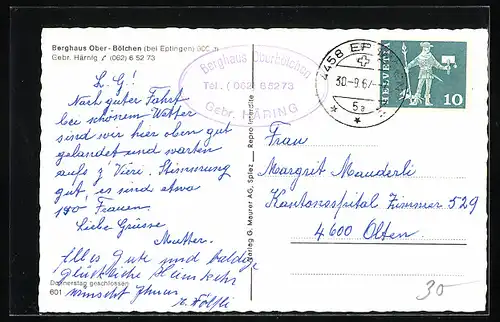 Berghaus Ober-Bölchen (bei Eptingen) 900 m
Gebr. Härnig ✓ (062) 6 52 73
L. G!
Nach guter Fahrt
bei schönem Wetter
sind wir hier oben gut
gelandet und warten
aufs z'Vieri. Stimmung
gut, es sind etwa
140 Frauen.
Liebe Grüsse
Mutter.
Alles Gute und baldige
glückliche Heimkehr
wünscht Ihnen
Donnerstag geschlossen
601
Berghaus Oberbölchen
Tel. (062) 6 52 73
Gebr. HÄRING
Verlag G. Maurer AG, Spiez
Repro interdite
4458 EPTINGEN
30-9.67-
5a
HELVETIA
10
Frau
Margrit Mauderli
Kantonsspital Zimmer 529
4600 Olten.
30